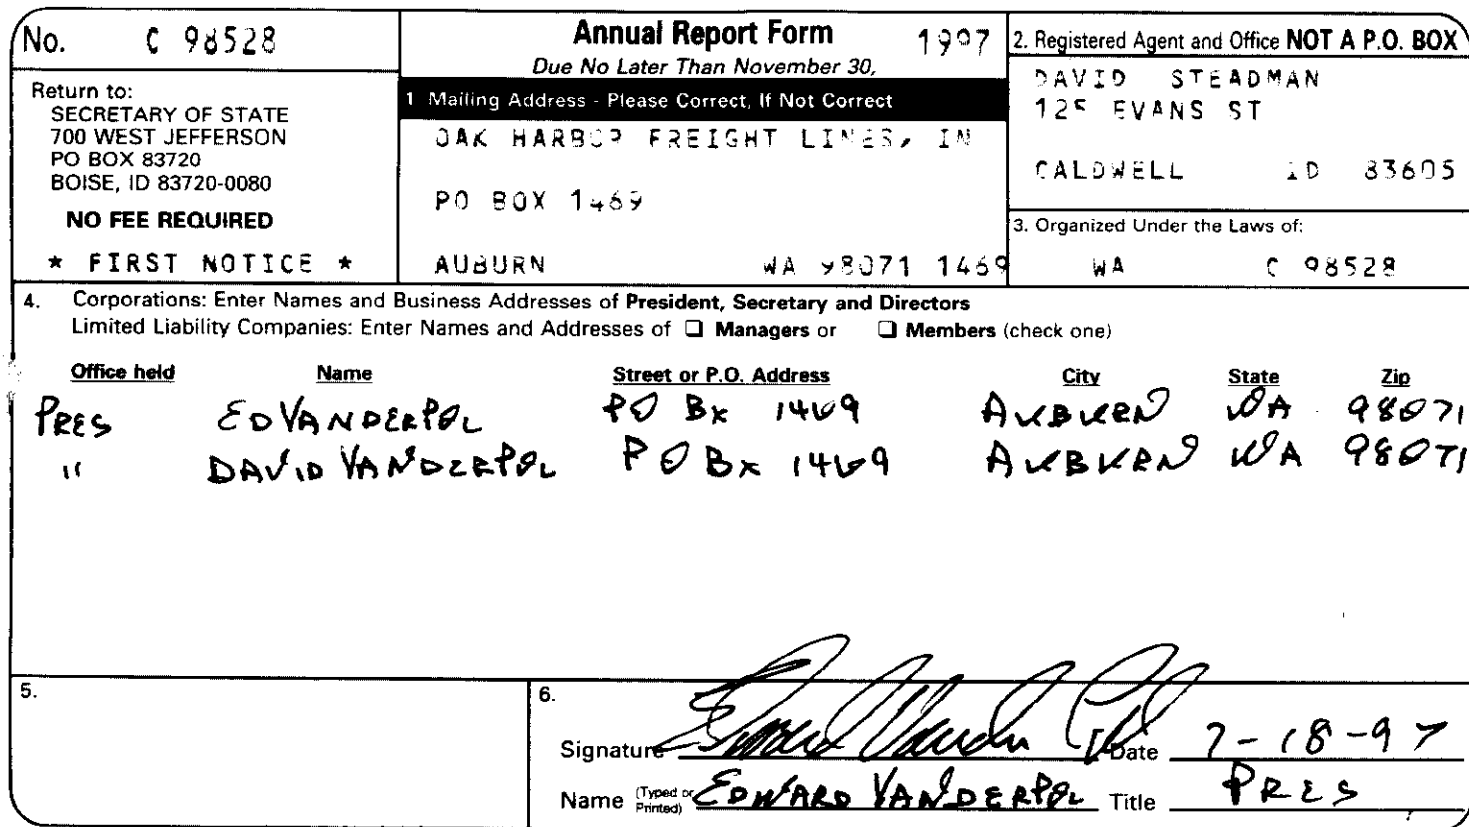 No. C 98528
Annual Report Form 1997
Due No Later Than November 30,
Return to:
SECRETARY OF STATE
700 WEST JEFFERSON
PO BOX 83720
BOISE, ID 83720-0080
NO FEE REQUIRED
* FIRST NOTICE *
1 Mailing Address - Please Correct, If Not Correct
OAK HARBOR FREIGHT LINES, IN
PO BOX 1469
AUBURN WA 98071 1469
2. Registered Agent and Office NOT A P.O. BOX
DAVID STEADMAN
125 EVANS ST
CALDWELL ID 83605
3. Organized Under the Laws of:
WA C 98528
4. Corporations: Enter Names and Business Addresses of President, Secretary and Directors
Limited Liability Companies: Enter Names and Addresses of ❑ Managers or ❑ Members (check one)
Office held Name Street or P.O. Address City State Zip
PRES ED VANDERPOL PO Bx 1469 AUBURN WA 98071
" DAVID VANDERPOL PO Bx 1469 AUBURN WA 98071
5.
6.
Signature Edward Vander Pol Date 7-18-97
Name (Typed or Printed) EDWARD VANDERPOL Title PRES